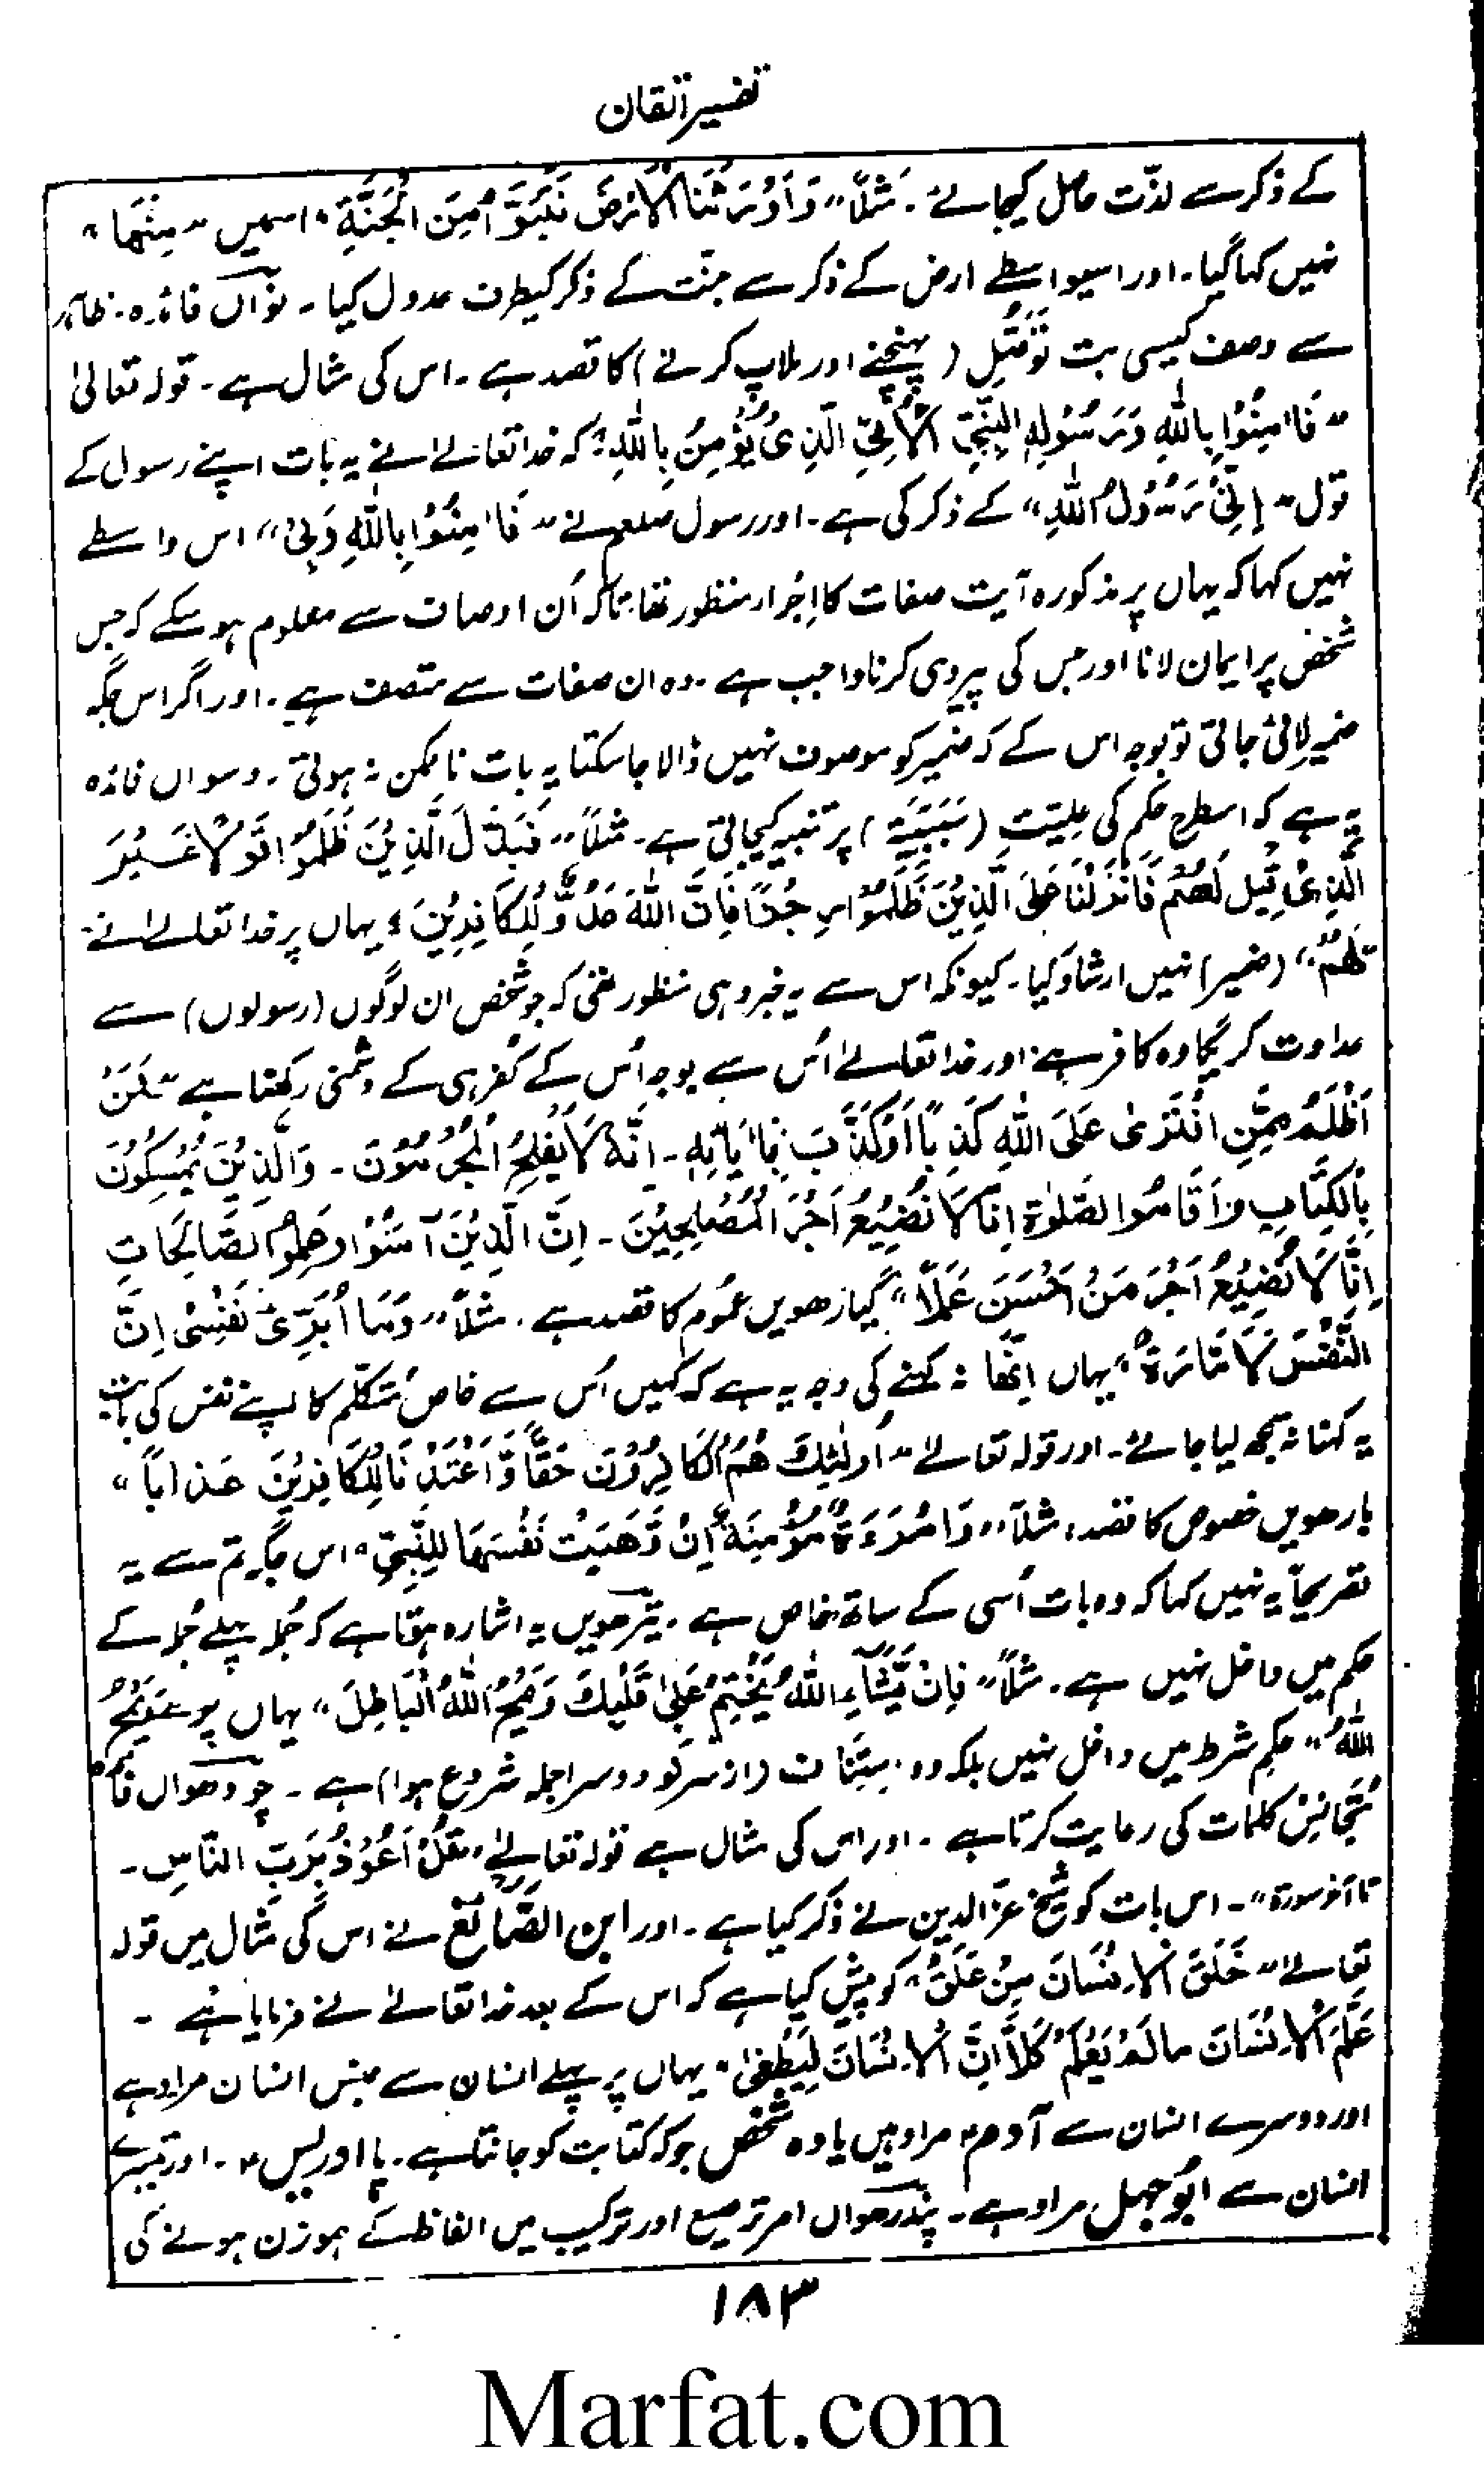 تفسیر اتقان
کے ذکر سے لذّت حاصل کیجائے۔ مَثلاً "وَاَوْرَثَنَا الْاَرْضَ نَتَبَوَّأُ مِنَ الْجَنَّةِ" اسمیں "مِنْهَا"
نہیں کہا گیا۔ اور اسیواسطے ارض کے ذکر سے جنّت کے ذکر کیطرف عدول کیا۔ نوّاں فائدہ۔ ظاہر
سے وصف کیسی بت تَوَصُّلِ (پہنچنے اور ملاپ کرنے) کا قصد ہے۔ اس کی مثال ہے۔ قولہ تعالیٰ
"فَاٰمِنُوْا بِاللّٰهِ وَرَسُوْلِهِ النَّبِيِّ الْاُمِّيِّ الَّذِيْ يُؤْمِنُ بِاللّٰهِ" کہ خدا تعالےٰ نے یہ بات اپنے رسول کے
قول "اِنِّيْ رَسُوْلُ اللّٰهِ" کے ذکر کی ہے۔ اور رسول صلعم نے "فَاٰمِنُوْا بِاللّٰهِ وَبِيْ" اس واسطے
نہیں کہا کہ یہاں پر مذکورہ آیت صفات کا اِجْرار منظور تھا تاکہ اُن اوصاف سے معلوم ہو سکے کہ جس
شخص پر ایمان لانا اور جس کی پیروی کرنا واجب ہے۔ وہ ان صفات سے متصف ہے۔ اور اگر اس جگہ
ضمیر لائی جاتی تو بوجہ اس کے کہ ضمیر کو موصوف نہیں ڈالا جا سکتا یہ بات ناممکن نہ ہوتی۔ دسواں فائدہ
یہ ہے کہ اسطرح حکم کی علیّت (سَبَبِيَّة) پر تنبیہ کیجاتی ہے۔ مثلاً "فَبَدَّلَ الَّذِيْنَ ظَلَمُوْا قَوْلًا غَيْرَ
الَّذِيْ قِيْلَ لَهُمْ فَاَنْزَلْنَا عَلَى الَّذِيْنَ ظَلَمُوْا رِجْزًا فَاِنَّ اللّٰهَ عَدُوٌّ لِّلْكَافِرِيْنَ" یہاں پر خدا تعالےٰ نے
"لَهُمْ" (ضمیر) نہیں ارشاد کیا۔ کیونکہ اس سے یہ خبر دہی منظور تھی کہ جو شخص ان لوگوں (رسولوں) سے
عداوت کریگا وہ کافر ہے، اور خدا تعالےٰ اُس سے بوجہ اُس کے کفر ہی کے دشمنی رکھتا ہے "فَمَنْ
اَظْلَمُ مِمَّنِ افْتَرٰى عَلَى اللّٰهِ كَذِبًا اَوْ كَذَّبَ بِاٰيَاتِهٖ۔ اِنَّهٗ لَا يُفْلِحُ الْمُجْرِمُوْنَ۔ وَالَّذِيْنَ يُمَسِّكُوْنَ
بِالْكِتَابِ وَاَقَامُوا الصَّلٰوةَ اِنَّا لَا نُضِيْعُ اَجْرَ الْمُصْلِحِيْنَ۔ اِنَّ الَّذِيْنَ آمَنُوْا وَعَمِلُوا الصَّالِحَاتِ
اِنَّا لَا نُضِيْعُ اَجْرَ مَنْ اَحْسَنَ عَمَلًا" گیارھویں عموم کا قصد ہے۔ مثلاً "وَمَا اُبَرِّئُ نَفْسِيْ اِنَّ
النَّفْسَ لَاَمَّارَةٌ" یہاں اِنَّھَا نہ کہنے کی وجہ یہ ہے کہ کہیں اُس سے خاص متکلّم کا اپنے نفس کی بابت
یہ کہنا نہ سمجھ لیا جائے۔ اور قولہ تعالےٰ "اُولٰئِكَ هُمُ الْكَافِرُوْنَ حَقًّا وَّاَعْتَدْنَا لِلْكَافِرِيْنَ عَذَاباً"
بارھویں خصوص کا قصد، مثلاً "وَامْرَءَةً مُّؤْمِنَةً اِنْ وَّهَبَتْ نَفْسَهَا لِلنَّبِيِّ" اس جگہ تم سے یہ
تصریحاً یہ نہیں کہا کہ وہ بات اُسی کے ساتھ خاص ہے۔ تیرھویں یہ اشارہ ہوتا ہے کہ جُملہ پہلے جُملہ کے
حکم میں داخل نہیں ہے۔ مثلاً "فَاِنْ يَّشَاءِ اللّٰهُ يَخْتِمْ عَلٰى قَلْبِكَ وَيَمْحُ اللّٰهُ الْبَاطِلَ" یہاں پر "وَيَمْحُ
اللّٰهُ" حکمِ شرط میں داخل نہیں بلکہ وہ استیناف (از سر نو دوسرا جملہ شروع ہوا) ہے۔ چودھواں فائدہ
تَجَانِیْس کلمات کی رعایت کرتا ہے۔ اور اس کی مثال ہے قولہ تعالےٰ "قُلْ اَعُوْذُ بِرَبِّ النَّاسِ۔
تا آخر سورۃ"۔ اس بات کو شیخ عزّ الدین نے ذکر کیا ہے۔ اور ابن الصّائغ نے اس کی مثال میں قولہ
تعالےٰ "خَلَقَ الْاِنْسَانَ مِنْ عَلَقٍ" کو پیش کیا ہے کہ اس کے بعد خدا تعالےٰ نے فرمایا ہے۔
عَلَّمَ الْاِنْسَانَ مَا لَمْ يَعْلَمْ كَلَّا اِنَّ الْاِنْسَانَ لَيَطْغٰى" یہاں پر پہلے انسان سے جنس انسان مراد ہے
اور دوسرے انسان سے آدمؑ مراد ہیں یا وہ شخص جو کہ کتابت کو جانتا ہے۔ یا ادریسؑ۔ اور تیسرے
انسان سے ابُو جہل مراد ہے۔ پندرھواں امر ترصیع اور ترکیب میں الفاظ کے ہموزن ہونے کی
۱۸۳
Marfat.com